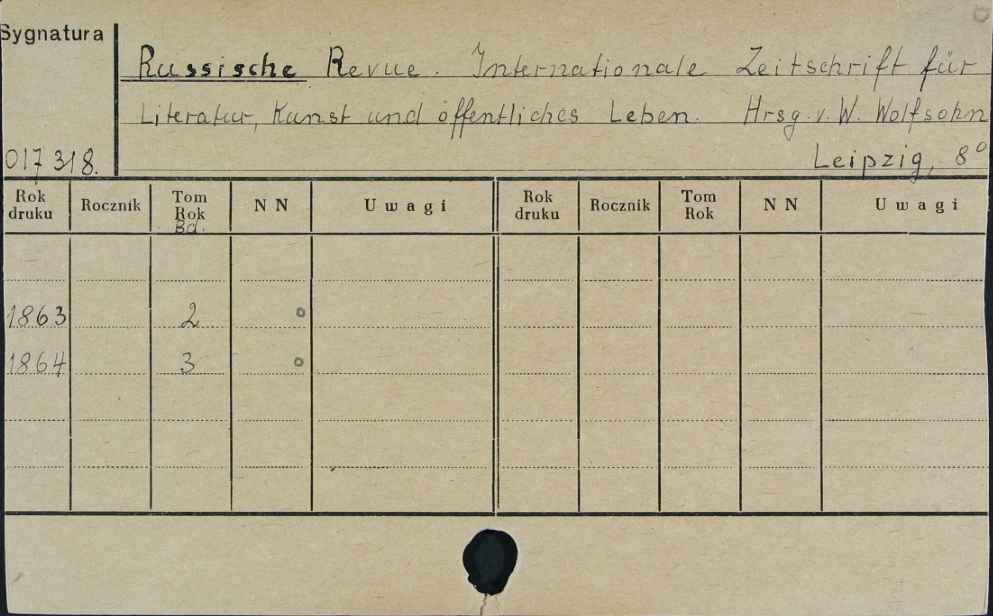 Sygnatura
Russische Revue. Internationale Zeitschrift für
Literatur, Kunst und öffentliches Leben. Hrsg. v. W. Wolfsohn
017318. Leipzig, 8°
Rok druku Rocznik Tom Rok Bd. NN Uwagi Rok druku Rocznik Tom Rok NN Uwagi
1863 2 o
1864 3 o